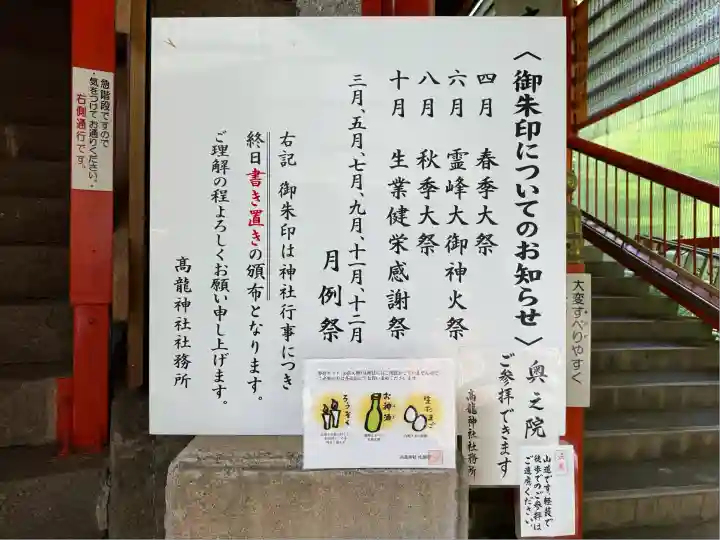 〈御朱印についてのお知らせ〉
四月　春季大祭
六月　霊峰大御神火祭
八月　秋季大祭
十月　生業健栄感謝祭
三月、五月、七月、九月、十一月、十二月
月例祭
右記　御朱印は神社行事につき
終日書き置きの頒布となります。
ご理解の程よろしくお願い申し上げます。
高龍神社社務所
奥之院
ご参拝できます
高龍神社社務所
注意
山道です。軽装で
徒歩でのご参拝は
ご遠慮ください。
生たまご
お神酒
ろうそく
大変すべりやすく
急階段ですので
・気をつけてお通りください・
右側通行です。